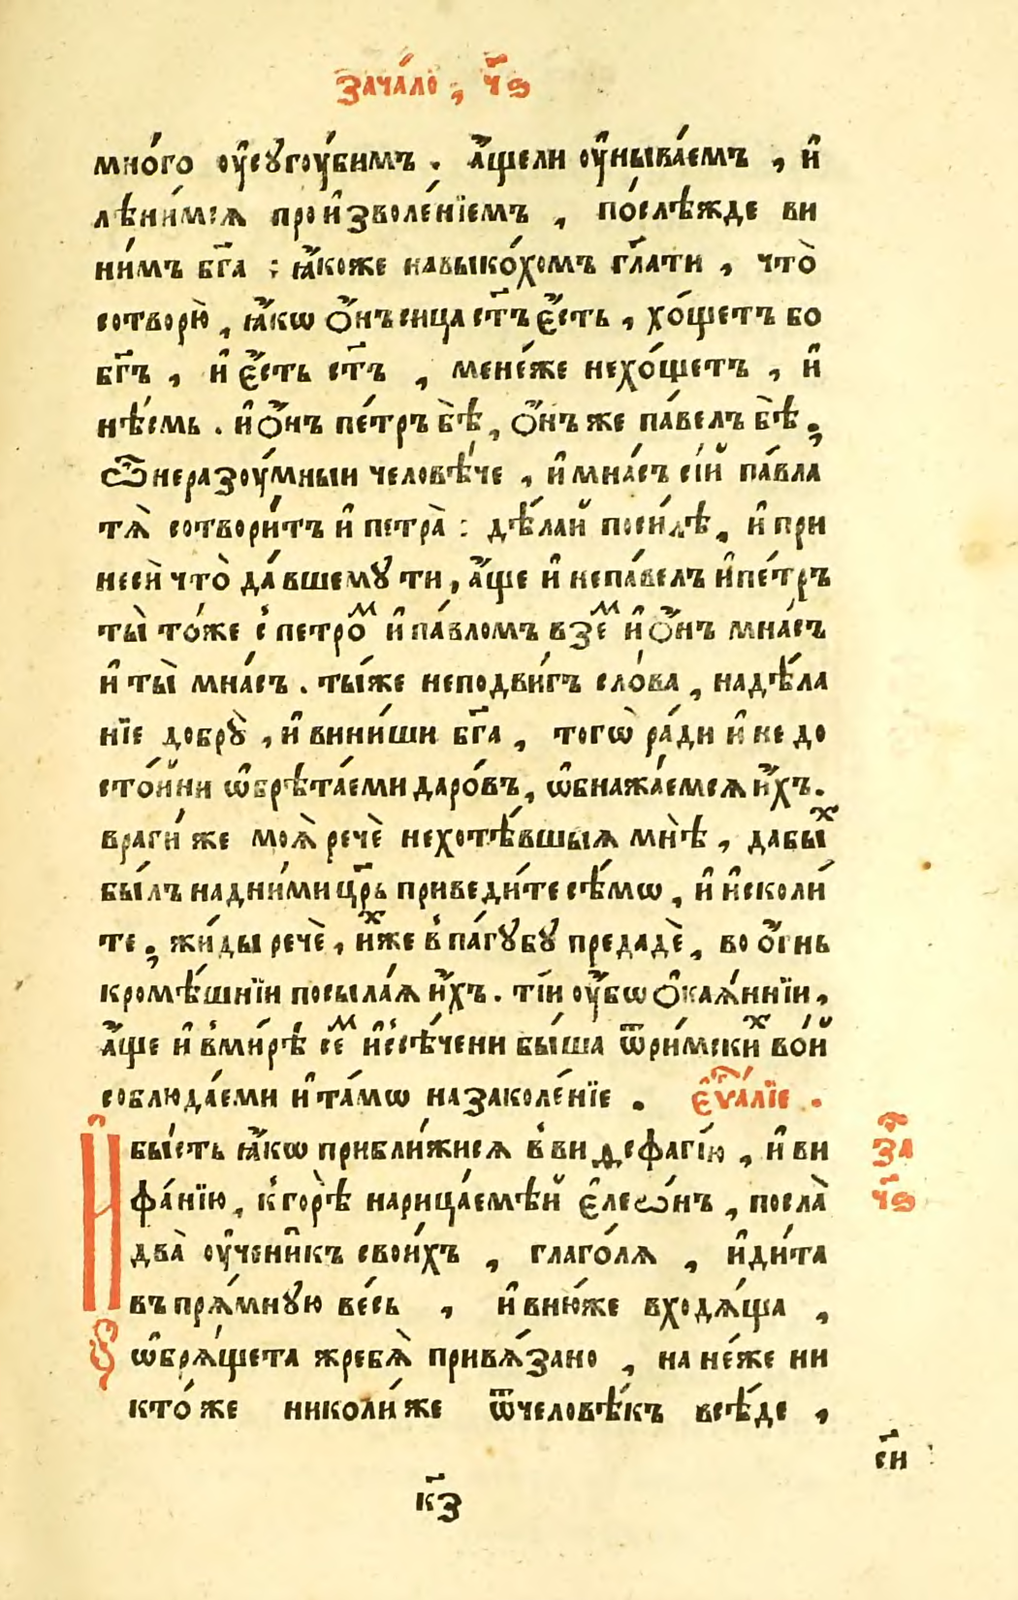 зача́ло , ч҃ѕ
мно́го ᲂу҆сугоу́бимъ . а҆́щели ᲂу҆ныва́емъ , и҆
лѣни́мсѧ прои҆зволе́нїемъ , по́слѣжде ви
ни́мъ бг҃а : ꙗ҆́коже навыко́хомъ гл҃ати , что̀
сотворю̀ , ꙗ҆́кѡ ѻ҆́нъсица ст҃ъ є҆́сть , хо́щетъ бо
бг҃ъ , и҆ є҆́сть ст҃ъ , мене́же нехо́щетъ , и҆
нѣ́смь . и҆ ѻ҆́нъ пе́тръ бѣ̀ , ѻ҆́нъ же па́велъ бѣ̀ .
ѽ неразоу́мныи человѣ́че , и҆ мна́съ сі́й па́вла
тѧ̀ сотвори́тъ и҆ петра̀ : дѣ́лай поси́лѣ , и҆ при
неси̂ что̀ да́вшему ти , а҆́ще и҆ непа́велъ и҆пе́тръ
ты̀ то́же с̾ петро́м и҆ па́вломъ взе́м и҆ ѻ҆́нъ мна́съ
и҆ ты̀ мна́съ . ты́же неподви́гъ сло́ва , надѣ́ла
нїе добрꙋ̀ , и҆ вини́ши бг҃а , тогѡ̀ ра́ди и҆ не до
сто́йни ѡ҆брѣта́еми даро́въ , ѡ҆бнажа́емсѧ и҆́хъ .
враги́ же моѧ̀ речѐ нехотѣ́вшыѧ мнѣ̀ , дабы́х
бы́лъ надни́ми цр҃ь приведи́те сѣ́мѡ , и҆ и҆сколи́
те , жи́ды речѐ , и҆́хже в̾ па́гꙋбꙋ предадѐ , во ѻ҆́гнь
кромѣ́шнїи посыла́ѧ и҆́хъ . ті́и ᲂу҆́бѡ ѻ҆каѧ́ннїи ,
а҆́ще и҆ в̾ми́рѣ се́м и҆ссѣ́чени бы́ша ѿри́мских во́й
соблюда́еми и҆ та́мѡ на заколе́нїе . є҆ѵⷢ҇а́лїе .
И҆ бы́сть ꙗ҆́кѡ прибли́жисѧ в̾ ви дсфагі́ю , и҆ ви
фа́нїю , к̾ горѣ̀ нарица́емѣй є҆леѡ́нъ , посла̀
два̀ ᲂу҆чени̂къ свои́хъ , глаго́лѧ , и҆ди́та
въ прѧ́мнꙋю ве́сь , и҆ вню́же входѧ́ща ,
ѡ҆брѧ́щета жребѧ̀ привѧ́зано , на не́же ни
кто́же николи́же ѿчеловѣ́къ всѣ́де ,
за
ч҃ѕ
с҃и
к҃з